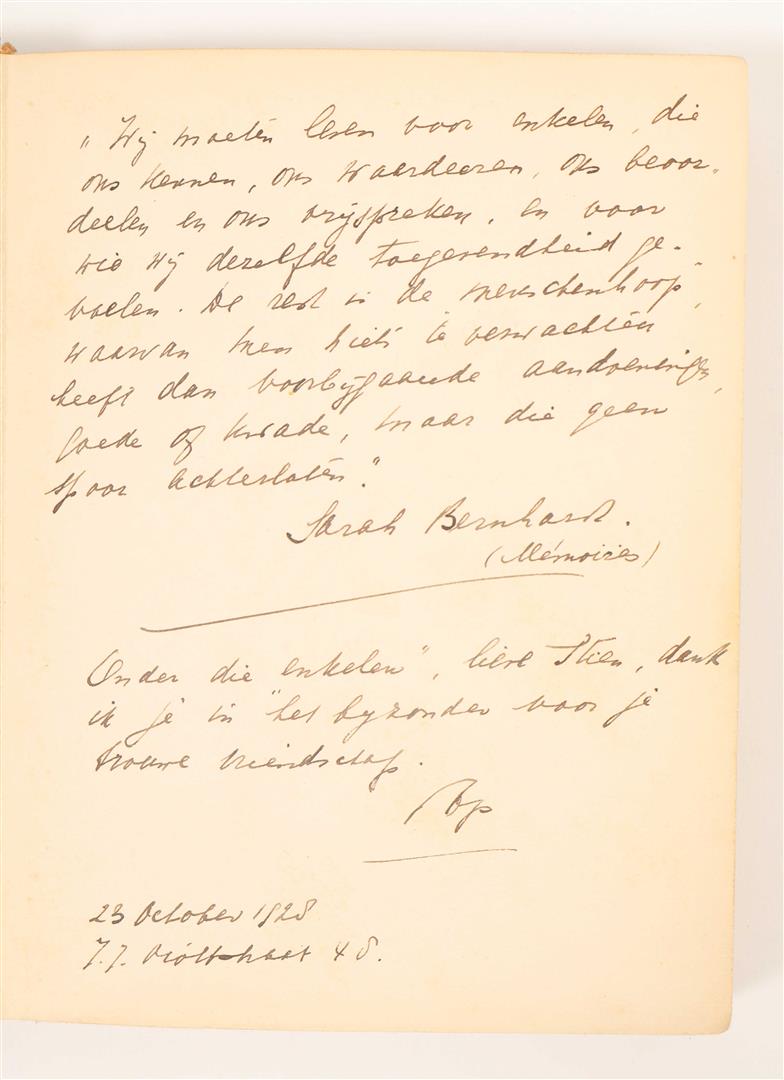 „Wij moeten leven voor enkelen, die
ons kennen, ons waardeeren, ons beoor-
deelen en ons vrijspreken, en voor
wie wij dezelfde toegevendheid ge-
voelen. De rest is de "menschenhoop",
waarvan men niets te verwachten
heeft dan voorbijgaande aandoeningen,
goede of kwade, maar die geen
spoor achterlaten."
Sarah Bernhardt.
(Mémoires)
Onder die enkelen", lieve Stien, dank
ik je in 't byzonder voor je
trouwe vriendschap.
23 October 1928
J.J. Viottastraat 48.